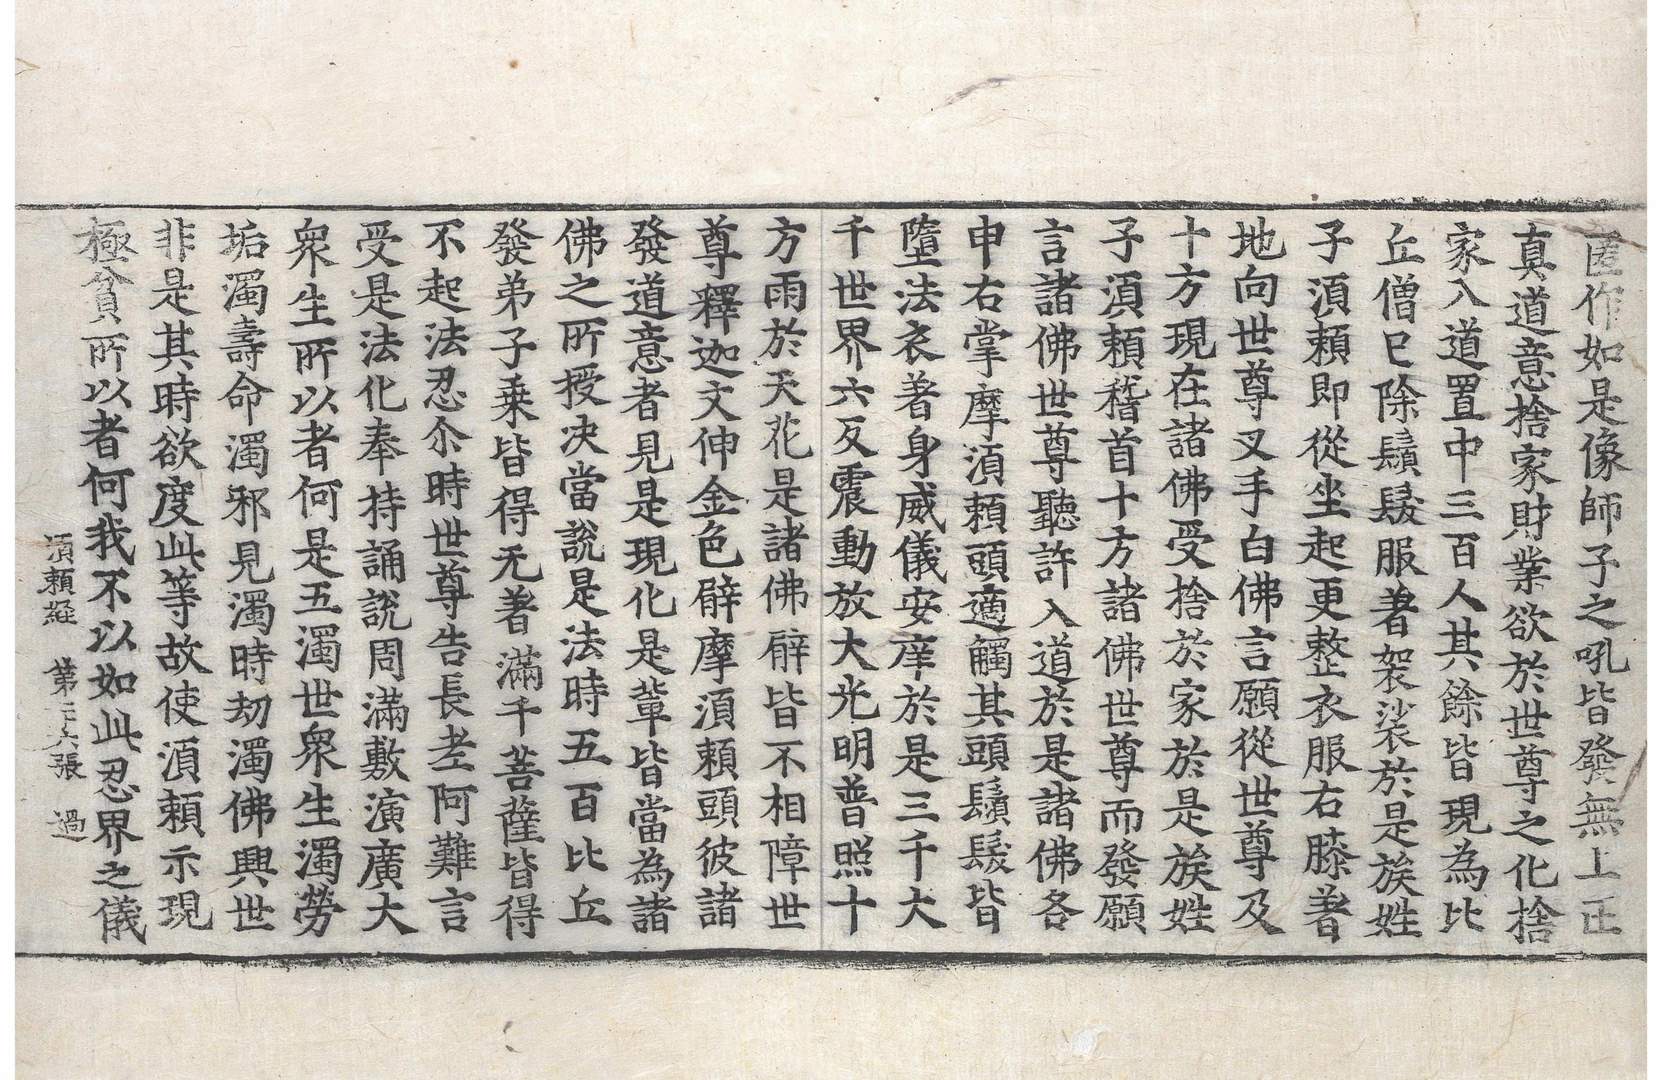 匿作如是像師子之吼皆發無上正
真道意捨家財業欲於世尊之化捨
家入道置中三百人其餘皆現為比
丘僧已除鬚髮服著袈裟於是族姓
子湏賴即從坐起更整衣服右膝著
地向世尊叉手白佛言願從世尊及
十方現在諸佛受捨於家於是族姓
子湏賴稽首十方諸佛世尊而發願
言諸佛世尊聽許入道於是諸佛各
申右掌摩湏賴頭適觸其頭鬚髮皆
墮法衣著身威儀安庠於是三千大
千世界六反震動放大光明普照十
方雨於天花是諸佛臂皆不相障世
尊釋迦文伸金色臂摩湏賴頭彼諸
發道意者見是現化是輩皆當為諸
佛之所授决當說是法時五百比丘
發弟子乗皆得无著滿千菩薩皆得
不起法忍尒時世尊告長老阿難言
受是法化奉持誦說周滿敷演廣大
衆生所以者何是五濁世衆生濁勞
垢濁壽命濁邪見濁時劫濁佛興世
非是其時欲度此等故使湏賴示現
極貧所以者何我不以如此忍界之儀
湏賴経 第二十六張 過